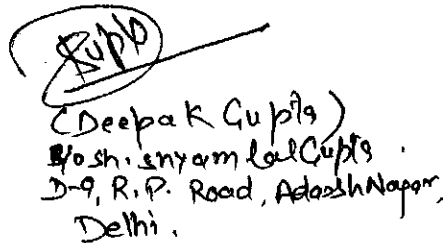 Gupta
(Deepak Gupta)
S/o sh. shyam lal Gupta.
D-9, R.P. Road, Adarsh Nagar,
Delhi.